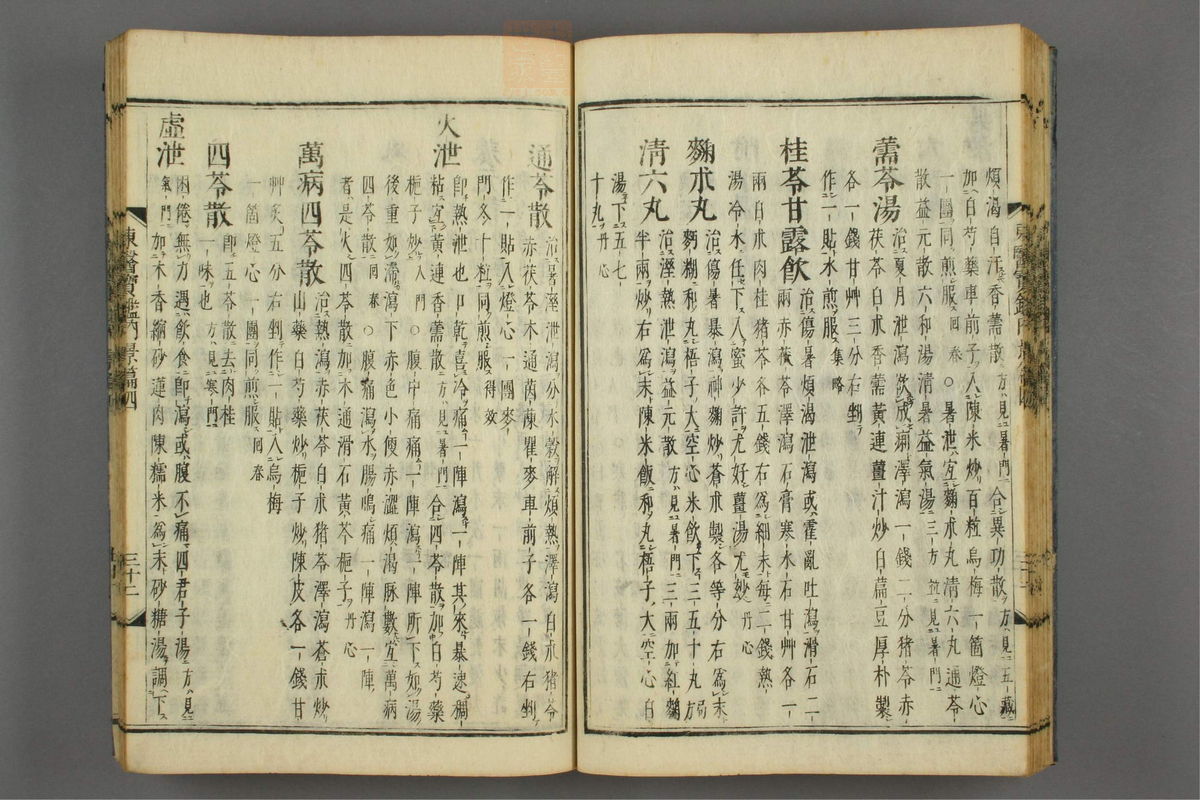 煩渴自汗香薷散方見暑門合異功散方見五藏
加白芍藥車前子入陳米炒百粒烏梅一箇燈心
一團同煎服回春○暑泄宜麴朮丸清六丸通苓
散益元散六和湯清暑益氣湯三方並見暑門
薷苓湯治夏月泄瀉欲成痢澤瀉一錢二分猪苓赤
茯苓白朮香薷黃連薑汁炒白扁豆厚朴製
各一錢甘艸三分右剉
作一貼水煎服集略
桂苓甘露飮治傷暑煩渴泄瀉或霍亂吐瀉滑石二
兩赤茯苓澤瀉石膏寒水石甘艸各一
兩白朮肉桂猪苓各五錢右爲細末每二錢熱
湯冷水任下入蜜少許尤好薑湯尤妙丹心
麴朮丸治傷暑暴瀉神麴炒蒼朮製各等分右爲末
麪糊和丸梧子大空心米飮下三五十丸局方
清六丸治溼熱泄瀉益元散方見暑門三兩加紅麴
半兩炒右爲末陳米飯和丸梧子大空心白
湯下五七
十丸丹心
通苓散治暑溼泄瀉分水穀解煩熱澤瀉白朮猪苓
赤茯苓木通茵陳瞿麥車前子各一錢右剉
作一貼入燈心一團麥
門冬十粒同煎服得效
火泄卽熱泄也口乾喜冷痛一陣瀉一陣其來暴速稠
粘宜黃連香薷散方見暑門合四苓散加白芍藥
梔子炒入門○腹中痛痛一陣瀉一陣所下如湯
後重如滯瀉下赤色小便赤澀煩渴脉數宜萬病
四苓散回春○腹痛瀉水腸鳴痛一陣瀉一陣
者是火四苓散加木通滑石黃芩梔子丹心
萬病四苓散治熱瀉赤茯苓白朮猪苓澤瀉蒼朮炒
山藥白芍藥炒梔子炒陳皮各一錢甘
艸炙五分右剉作一貼入烏梅
一箇燈心一團同煎服回春
四苓散卽五苓散去肉桂
一味也方見寒門
虛泄困倦無力遇飮食卽瀉或腹不痛四君子湯方見
氣門加木香縮砂蓮肉陳糯米爲末砂糖湯調下
東醫寶鑑內景篇四
三十二